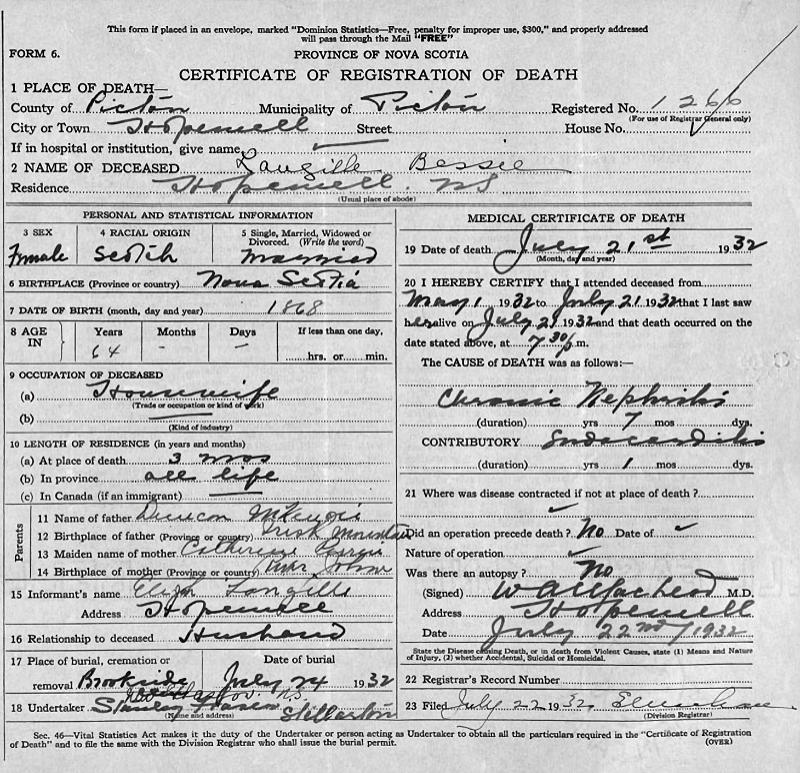 This form if placed in an envelope, marked "Dominion Statistics—Free, penalty for improper use, $300," and properly addressed
will pass through the Mail "FREE"
FORM 6.
PROVINCE OF NOVA SCOTIA
CERTIFICATE OF REGISTRATION OF DEATH
1 PLACE OF DEATH—
County of Pictou Municipality of Pictou Registered No. 1266
(For use of Registrar General only)
City or Town Hopewell Street House No.
If in hospital or institution, give name
2 NAME OF DECEASED Langille Bessie
Residence Hopewell NS
(Usual place of abode)
PERSONAL AND STATISTICAL INFORMATION
3 SEX 4 RACIAL ORIGIN 5 Single, Married, Widowed or
Divorced. (Write the word)
Female Scotch Married
6 BIRTHPLACE (Province or country) Nova Scotia
7 DATE OF BIRTH (month, day and year) 1868
8 AGE IN Years Months Days If less than one day,
64 - - hrs. or min.
9 OCCUPATION OF DECEASED
(a) Housewife
(Trade or occupation or kind of work)
(b)
(Kind of industry)
10 LENGTH OF RESIDENCE (in years and months)
(a) At place of death 3 mos
(b) In province all life
(c) In Canada (if an immigrant)
Parents
11 Name of father Duncan McKenzie
12 Birthplace of father (Province or country) Irish Mountain
13 Maiden name of mother Catherine
14 Birthplace of mother (Province or country) River John
15 Informant's name Elijah Langille
Address Hopewell
16 Relationship to deceased Husband
17 Place of burial, cremation or Date of burial
removal Brookside July 24 1932
18 Undertaker Stanley Fraser Stellarton
(Name and address)
MEDICAL CERTIFICATE OF DEATH
19 Date of death July 21st 1932
(Month, day and year)
20 I HEREBY CERTIFY that I attended deceased from
May 1 1932 to July 21 1932 that I last saw
her alive on July 21 1932 and that death occurred on
date stated above, at 7 30 p.m.
The CAUSE of DEATH was as follows:—
Chronic Nephritis
(duration) yrs 7 mos dys.
CONTRIBUTORY Endocarditis
(duration) yrs 1 mos dys.
21 Where was disease contracted if not at place of death?
Did an operation precede death? No Date of
Nature of operation
Was there an autopsy? No
(Signed) M.D.
Address Hopewell
Date July 22nd 1932
State the Disease causing Death, or in death from Violent Causes, state (1) Means and Nature
of Injury, (2) whether Accidental, Suicidal or Homicidal.
22 Registrar's Record Number
23 Filed July 22 1932
(Division Registrar)
Sec. 46—Vital Statistics Act makes it the duty of the Undertaker or person acting as Undertaker to obtain all the particulars required in the "Certificate of Registration
of Death" and to file the same with the Division Registrar who shall issue the burial permit. (OVER)